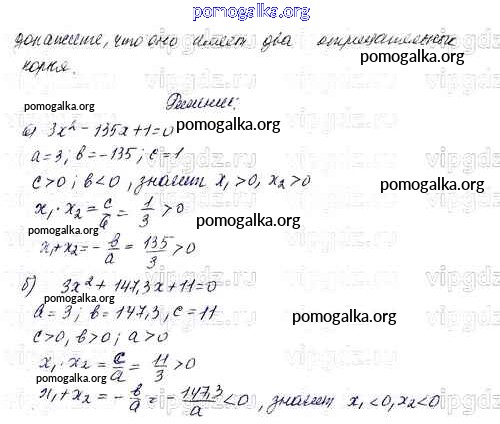 pomogalka.org
докажите, что оно имеет два отрицательных
корня.
pomogalka.org
pomogalka.org
Решение:
pomogalka.org
а) 3x² - 135x + 1 = 0
a = 3; b = -135; c = 1
c > 0; b < 0, значит x₁ > 0, x₂ > 0
pomogalka.org
x₁ · x₂ = c/a = 1/3 > 0
pomogalka.org
x₁ + x₂ = - b/a = 135/3 > 0
pomogalka.org
б) 3x² + 147,3x + 11 = 0
a = 3; b = 147,3, c = 11
pomogalka.org
c > 0, b > 0; a > 0
x₁ · x₂ = c/a = 11/3 > 0
pomogalka.org
x₁ + x₂ = - b/a = - 147,3/a < 0, значит x₁ < 0, x₂ < 0
pomogalka.org